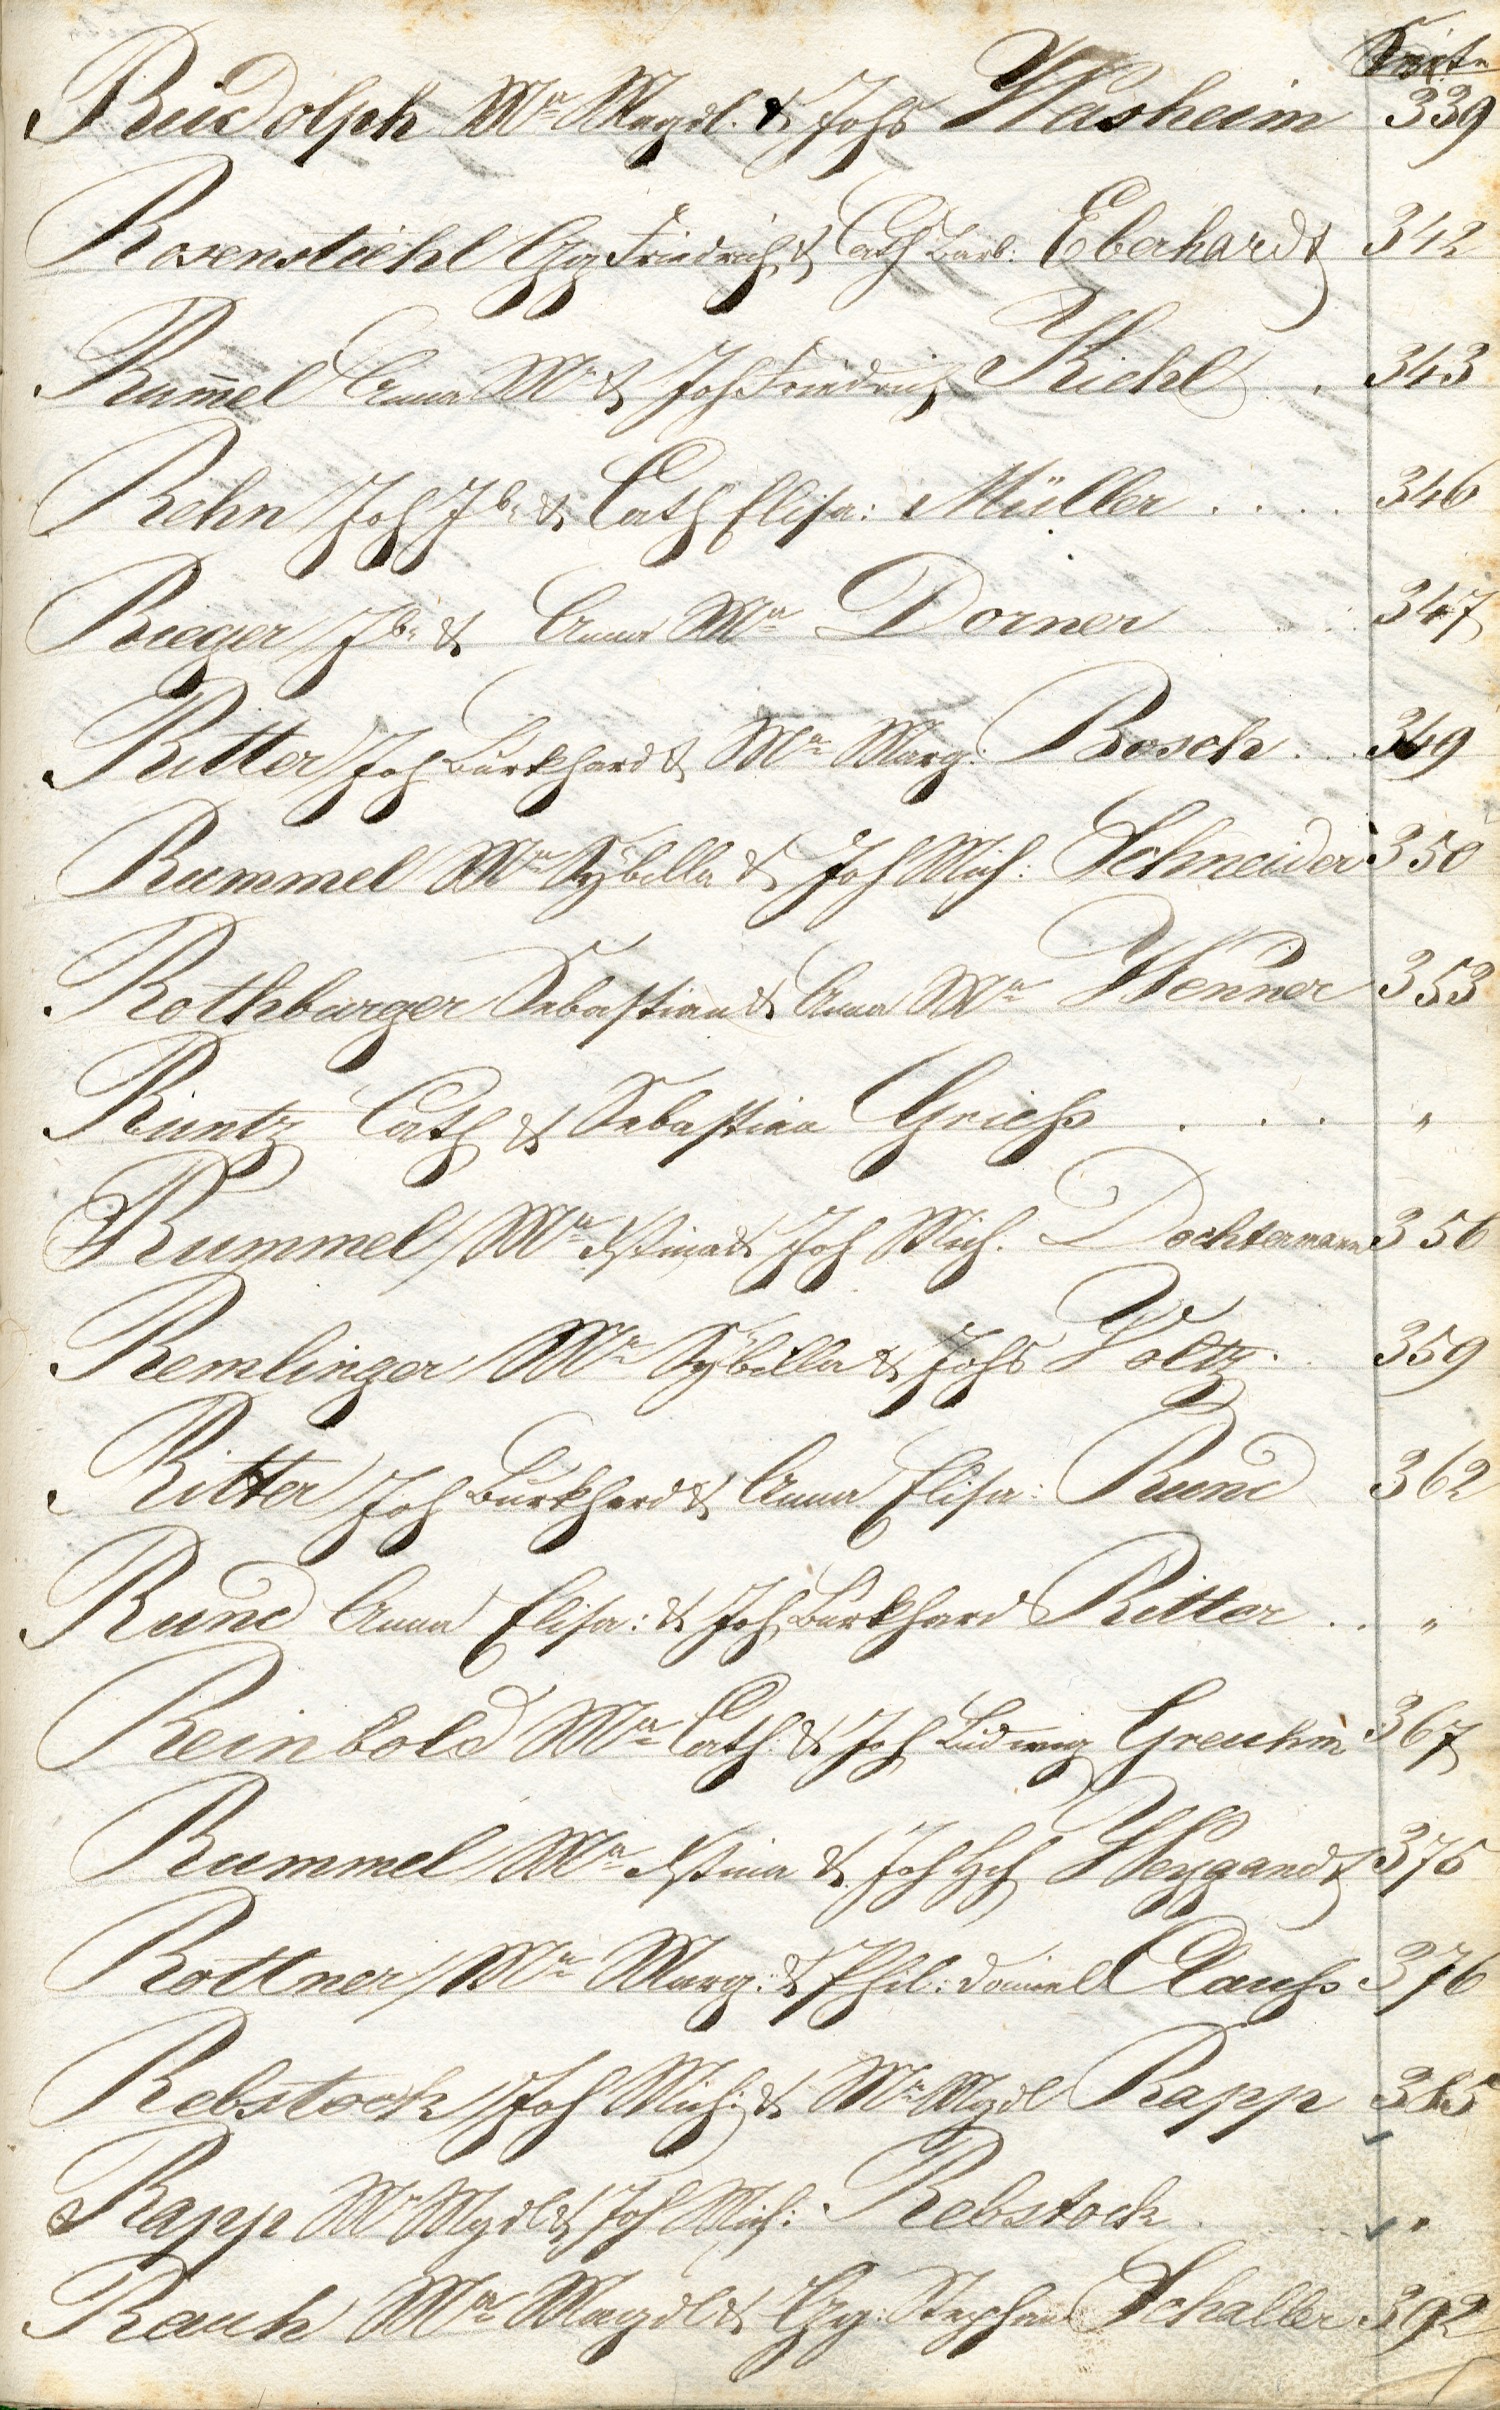 Seite
Rudolph Mra Magdl. & Johs Washeim 339
Rosenstiehl Gg Friedrich & Cath Barb: Eberhardt 342
Rum̅el Anna Mra & Joh Friedrich Riehl . 343
Rehn Joh Jb. & Cath Elisa: Müller . . . . 346
Rieger Jb. & Anna Mra Dorner 347
Ritter Joh Burkhard & Mra Marg: Bosch . . 349
Rummel Mra Sÿbilla & Joh Mich: Schneider 350
Rothburger Sebastian & Anna Mra Wenner 353
Runtz Cath & Sebastian Griehs . . . "
Rummel Mra Xstina & Joh Mich. Dochtermann 356
Remlinger Mra Sÿbilla & Johs Voltz . 359
Ritter Joh Burkhard & Anna Elisa: Rund 362
Rund Anna Elisa: & Joh Burkhard Ritter . . "
Reinbold Mra Cath: & Joh Ludwig Greuhm 367
Rummel Mra Xstina & Joh Hch Weygandt 375
Rottner Mra Marg: & Phil: Daniel Clauhs 376
Rebstock Joh Mich: & Mra Mgdl Rapp 385
Rapp Mra Mgdl & Joh Mich: Rebstock . "
Rauh Mra Magdl & Gg: Stephan Schaller 392